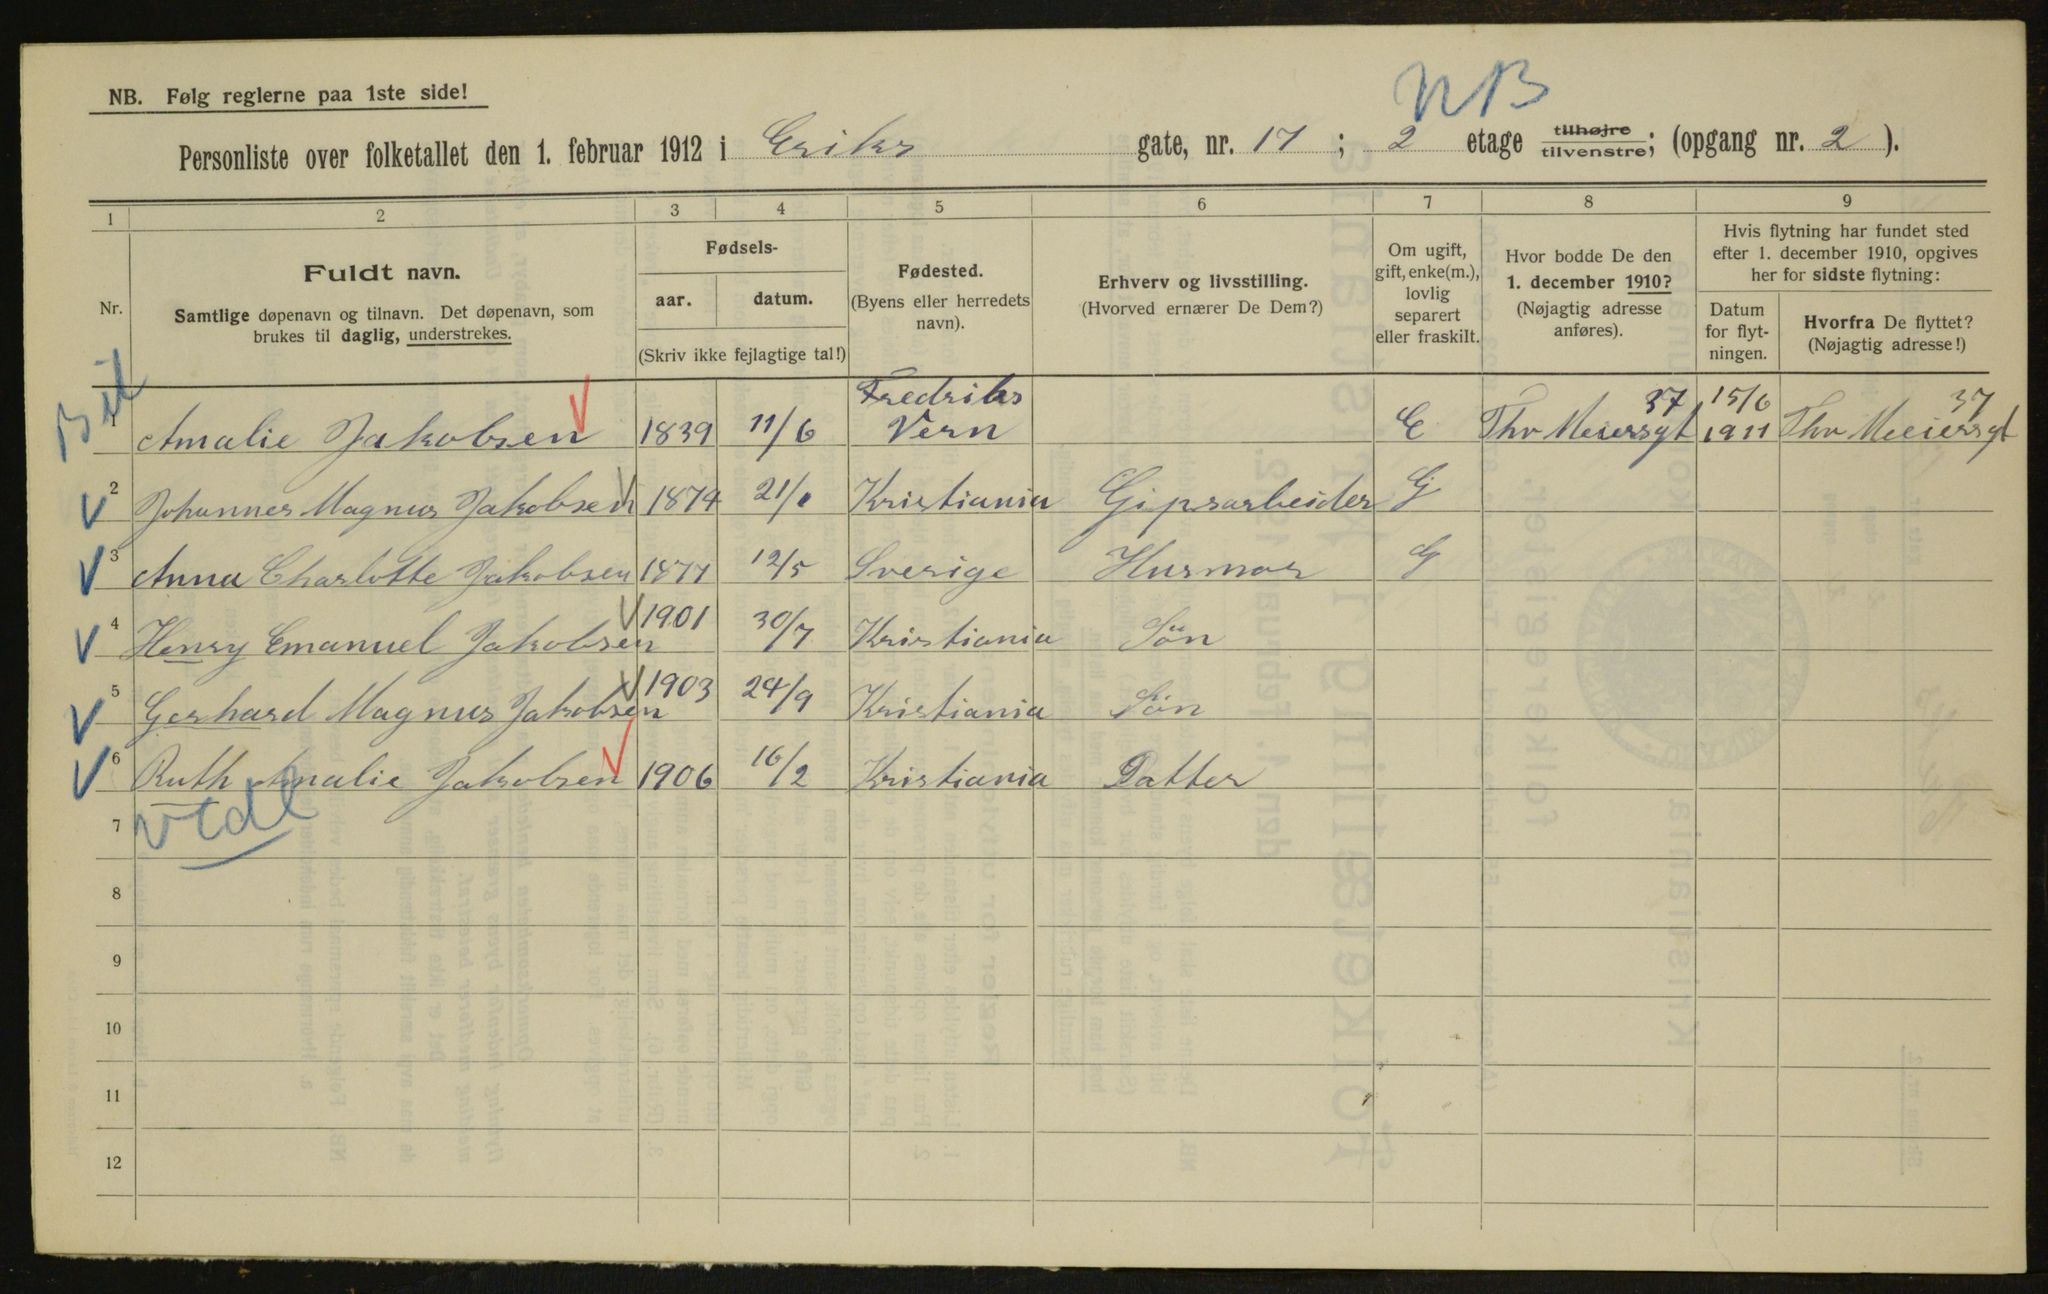 NB
NB. Følg reglerne paa 1ste side!
Personliste over folketallet den 1. februar 1912 i Eriks gate, nr. 17 ; 2 etage tilhøjre tilvenstre; (opgang nr. 2 ).
1 2 3 4 5 6 7 8 9
Nr.
Fuldt navn.
Samtlige døpenavn og tilnavn. Det døpenavn, som
brukes til daglig, understrekes.
Fødsels-
aar. datum.
(Skriv ikke fejlagtige tal!)
Fødested.
(Byens eller herredets
navn).
Erhverv og livsstilling.
(Hvorved ernærer De Dem?)
Om ugift,
gift, enke(m.),
lovlig
separert
eller fraskilt.
Hvor bodde De den
1. december 1910?
(Nøjagtig adresse
anføres).
Hvis flytning har fundet sted
efter 1. december 1910, opgives
her for sidste flytning:
Datum
for flyt-
ningen.
Hvorfra De flyttet?
(Nøjagtig adresse!)
1 Amalie Jakobsen 1839 11/6 Fredriks Vern E Thv Meiersgt 37 15/6 1911 Thv Meiersgt 37
2 Johannes Magnus Jakobsen 1874 Kristiania Gipsarbeider G
3 Anna Charlotte Jakobsen 1877 12/5 Sverige Husmor G
4 Henry Emanuel Jakobsen 1901 30/7 Kristiania Sön
5 Gerhard Magnus Jakobsen 1903 24/9 Kristiania Sön
6 Ruth Amalie Jakobsen 1906 16/2 Kristiania Datter
7
8
9
10
11
12